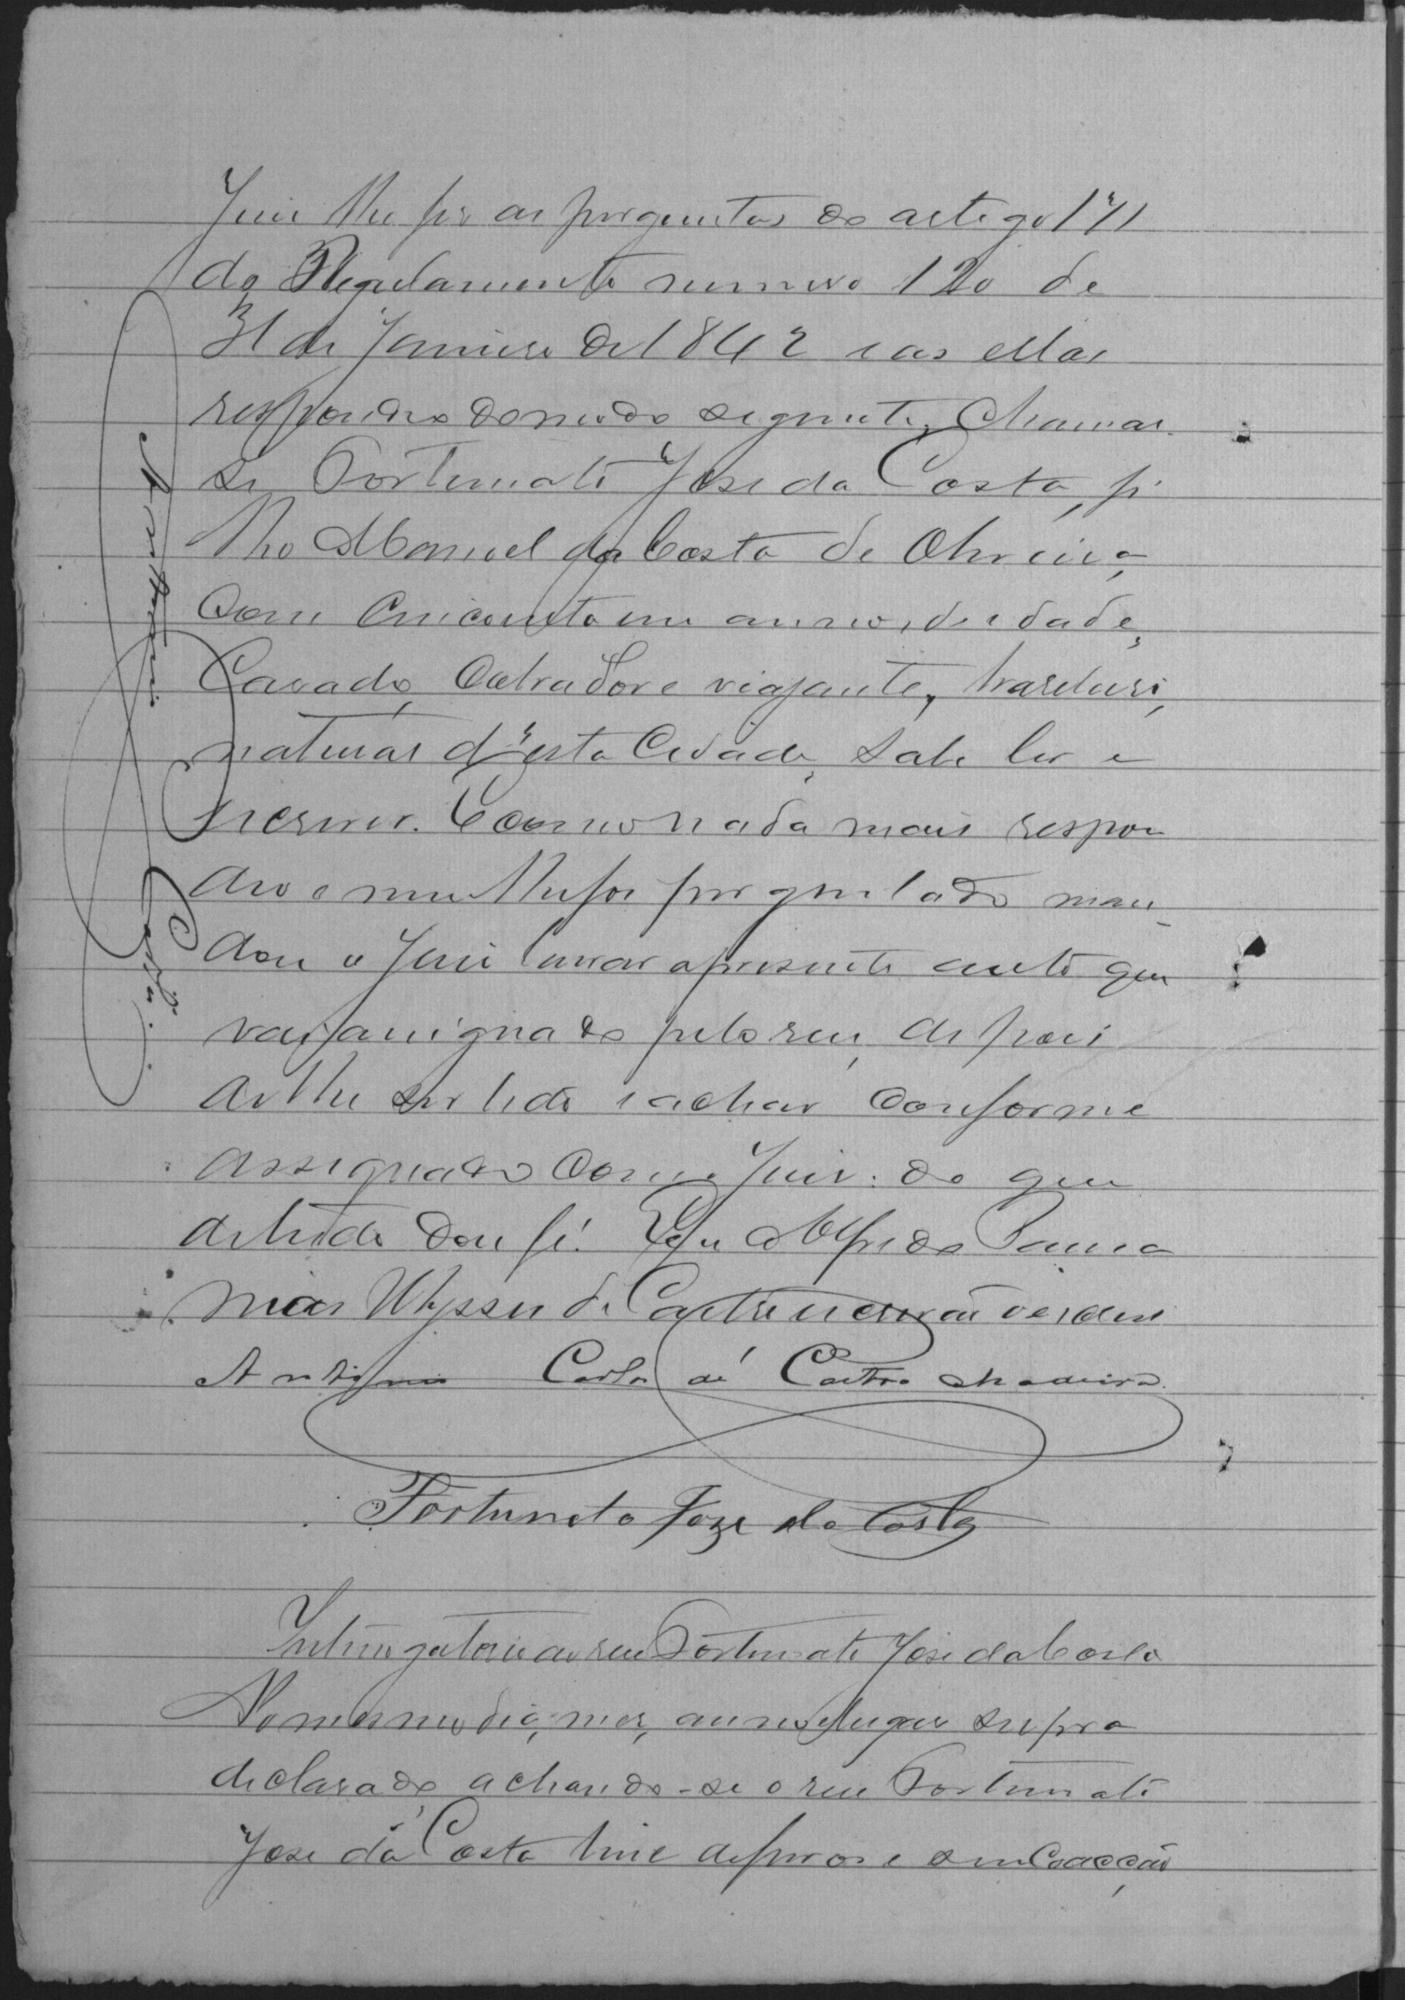 Juiz lhe fez as perguntas do artigo 171
do Regulamento numero 120 de
31 de Janeiro de 1842 e as ellas
respondeo do modo seguinte, Chamar-
se Fortunato José da Costa, fi
lho Manoel da Costa de Oliveira,
com cincoenta um annos de idade,
Casado, Cobrador e viajante, brasileiro,
natural d'esta Cidade, sabe ler e
escrever. Como nada mais respon
deo e nem lhe foi perguntado man-
dou o Juiz lavrar a presente auto que
vai assignado pelo reu, depois
de lhe ser lido e achar conforme
assignado com o Juiz: do que
de tudo dou fé. Eu Alfredo
Ulysses de Castro escrivão
Antonio Carlos de Castro Madeira
Fortunato Joze da Costa
Interrogatorio ao reu Fortunato José da Costa
No mesmo dia, mez, anno e lugar supra
declarado, achando-se o reu Fortunato
José da Costa livre de ferros e sem Coacção